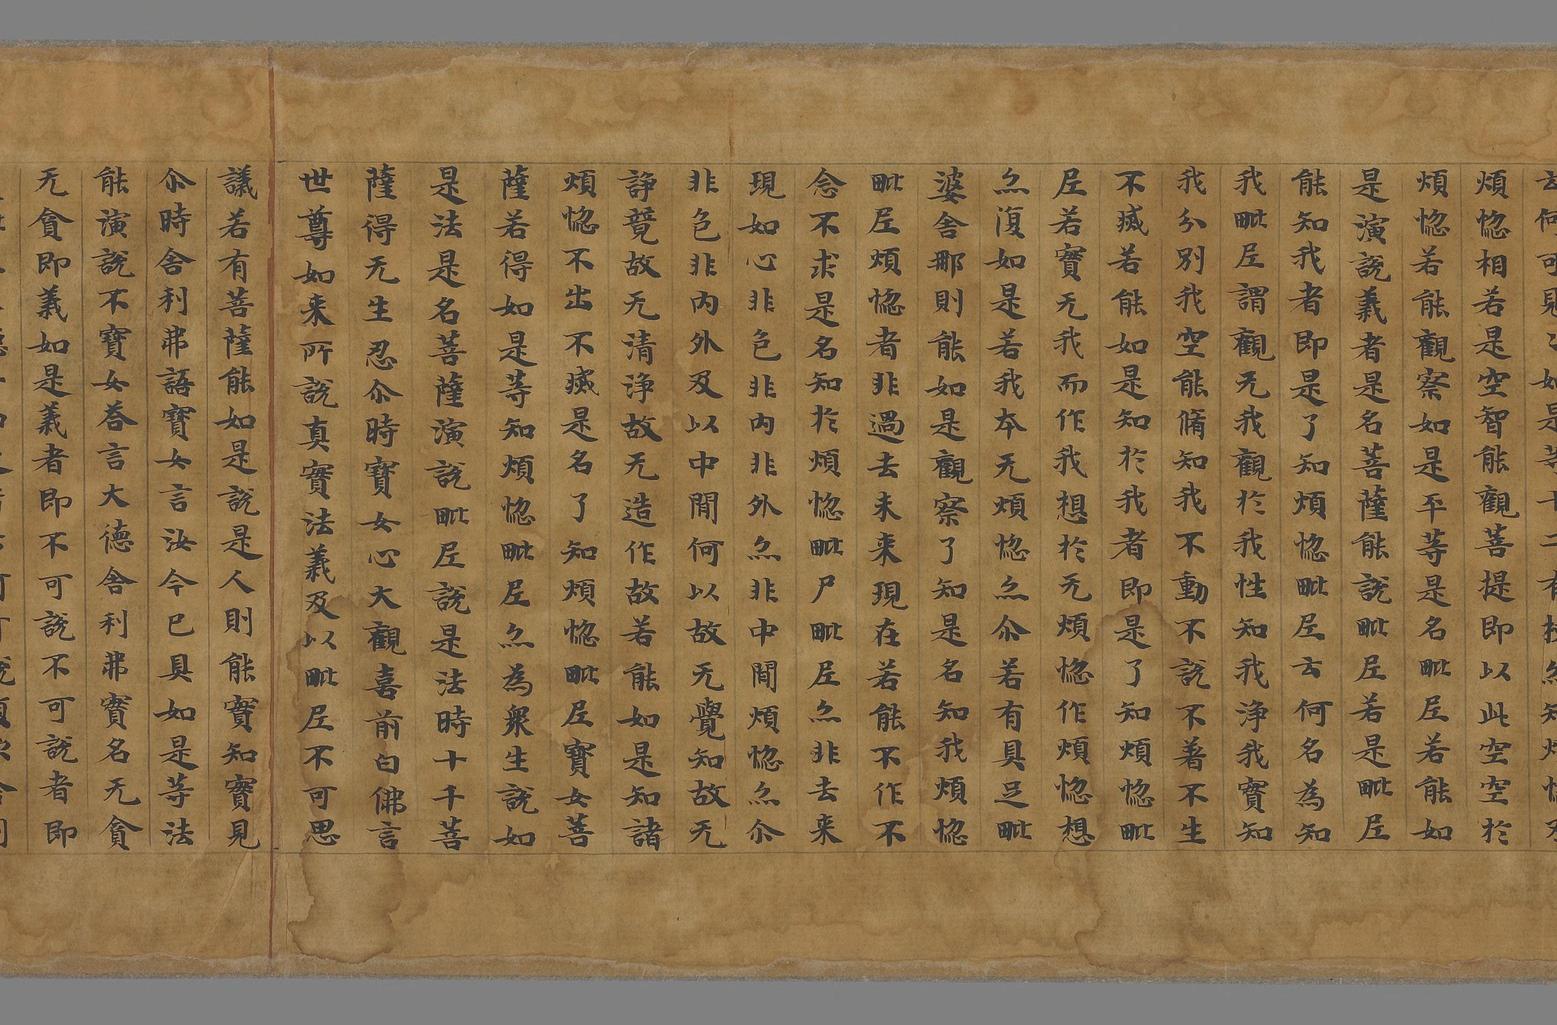 煩惚相若是空智能觀菩提即以此空空於
煩惚若能觀察如是平等是名毗𡰱若能如
是演說義者是名菩薩能說毗𡰱若是毗𡰱
能知我者即是了知煩惚毗𡰱云何名為知
我毗𡰱謂觀无我觀於我性知我淨我實知
我分別我空能脩知我不動不說不著不生
不滅若能如是知於我者即是了知煩惚毗
𡰱若實无我而作我想於无煩惚作煩惚想
亦復如是若我本无煩惚亦尒若有具足毗
婆舍那則能如是觀察了知是名知我煩惚
毗𡰱煩惚者非過去未來現在若能不作不
念不求是名知於煩惚毗尸毗𡰱亦非去來
現如心非色非內非外亦非中間煩惚亦尒
非色非內外及以中間何以故无覺知故无
諍競故无清淨故无造作故若能如是知諸
煩惚不出不滅是名了知煩惚毗𡰱寶女菩
薩若得如是等知煩惚毗𡰱亦為衆生說如
是法是名菩薩演說毗𡰱說是法時十千菩
薩得无生忍尒時寶女心大觀喜前白佛言
世尊如来所說真實法義及以毗𡰱不可思
議若有菩薩能如是說是人則能實知實見
尒時舍利弗語寶女言汝今已具如是等法
能演說不寶女荅言大德舍利弗實名无貪
无貪即義如是義者即不可說不可說者即